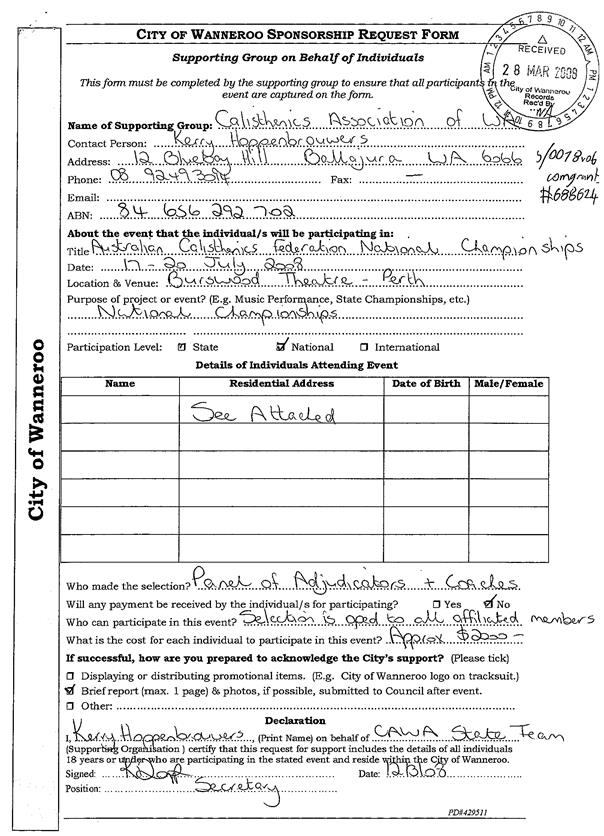 CITY OF WANNEROO SPONSORSHIP REQUEST FORM
Supporting Group on Behalf of Individuals
This form must be completed by the supporting group to ensure that all participants in the
event are captured on the form.
RECEIVED
28 MAR 2008
City of Wanneroo
Records
Rec'd By
Name of Supporting Group: Calisthenics Association of WA
Contact Person: Kerry Hoppenbrouwers
Address: 12 Bluebay Hill Ballajura WA 6066
Phone: 08 9249 3094 Fax: —
S/0078v06
comgrant
#688624
Email:
ABN: 84 656 292 702
About the event that the individual/s will be participating in:
Title Australian Calisthenics Federation National Championships
Date: 17 - 20 July 2008
Location & Venue: Burswood Theatre - Perth
Purpose of project or event? (E.g. Music Performance, State Championships, etc.)
National Championships
Participation Level: State National International
Details of Individuals Attending Event
Name Residential Address Date of Birth Male/Female
See Attached
City of Wanneroo
Who made the selection? Panel of Adjudicators + Coaches
Will any payment be received by the individual/s for participating? Yes No
Who can participate in this event? Selection is oped to all affiliated members
What is the cost for each individual to participate in this event? Approx $2000 -
If successful, how are you prepared to acknowledge the City's support? (Please tick)
Displaying or distributing promotional items. (E.g. City of Wanneroo logo on tracksuit.)
Brief report (max. 1 page) & photos, if possible, submitted to Council after event.
Other:
Declaration
I, Kerry Hoppenbrouwers, (Print Name) on behalf of CAWA State Team
(Supporting Organisation) certify that this request for support includes the details of all individuals
18 years or under who are participating in the stated event and reside within the City of Wanneroo.
Signed: Date: 12/3/08
Position: Secretary
PD#429511